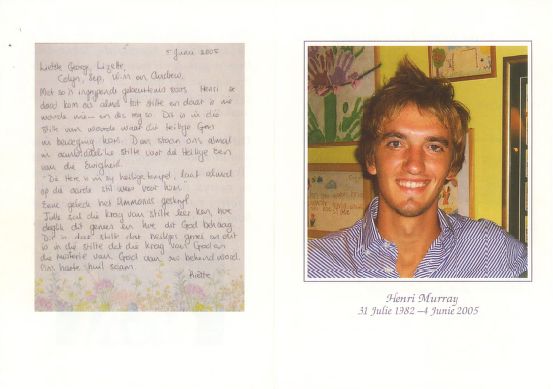 5 Junie 2005
Liefste George, Lizette,
Colyn, Sep, Wim en Andrew.
Met so 'n ingrypende gebeurtenis soos Henri se
dood kom ons almal tot stilte en daar is nie
woorde nie en dis reg so. Dit is in die
stilte van woorde waar die Heilige Gees
in beweging kom. Dan staan ons almal
in stilte voor die Heilige Een
van die Ewigheid.
"Die Here is in sy heilige tempel, laat almal
op die aarde stil wees voor hom."
Eens gebeck het
Julle sal die krag van stilte leer ken, hoe
dit genees en hoe dit God behaag.
Dit is deur stilte dat heiliges groei en dit
is in die stilte dat die krag van God en
die misterie van God aan ons bekend word.
Ons harte huil saam.
Henri Murray
31 Julie 1982 – 4 Junie 2005